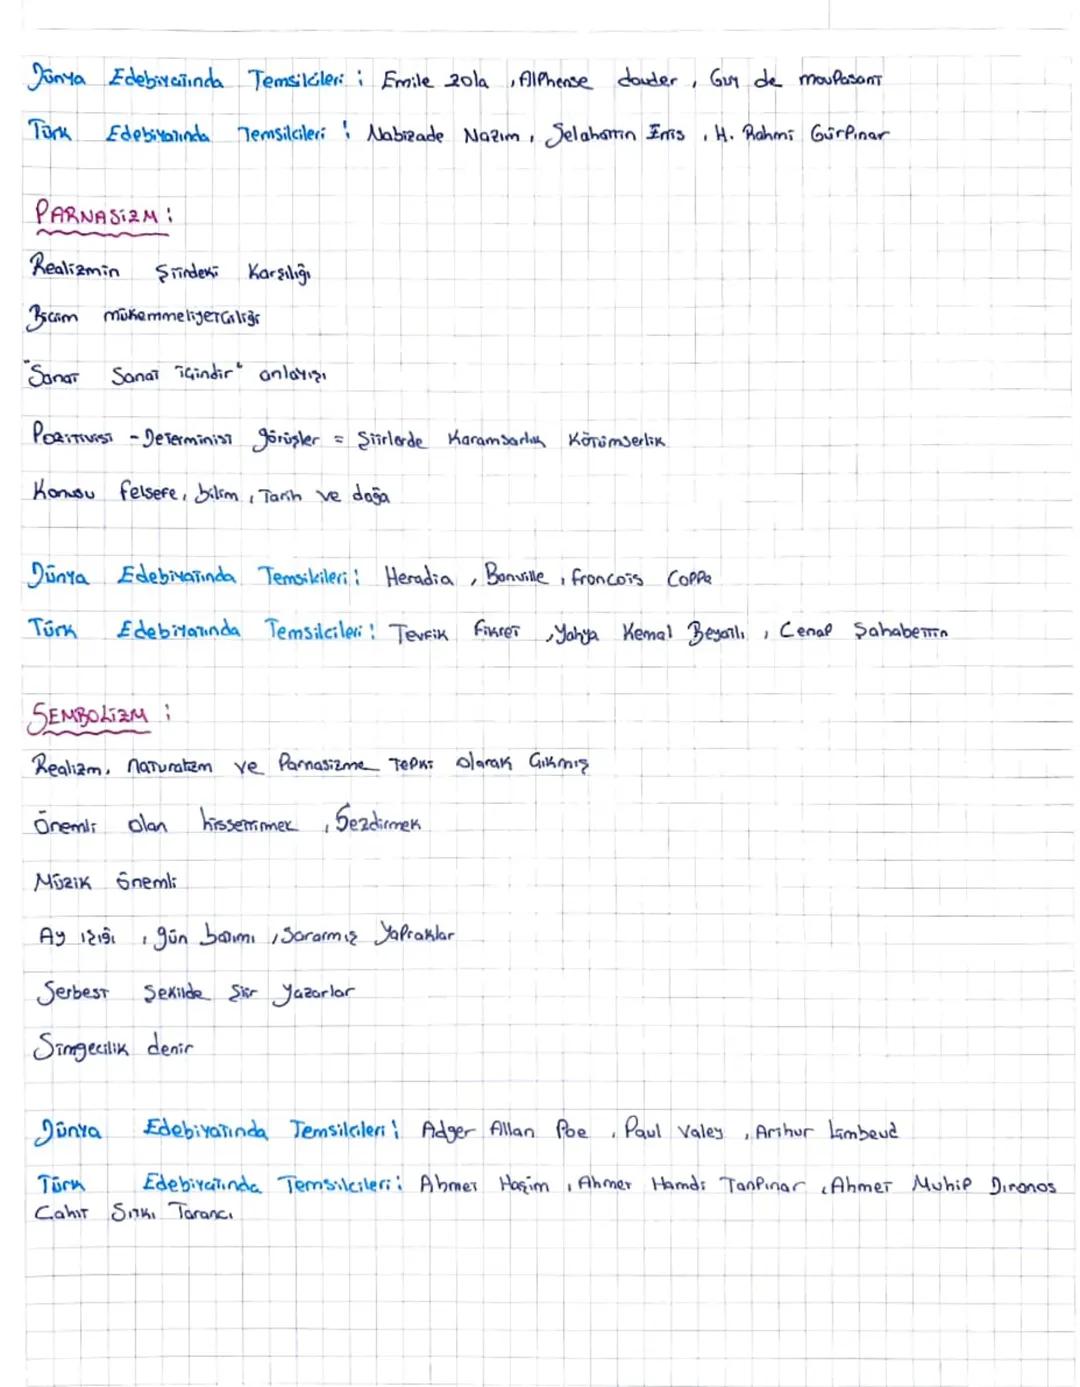 Dünya Edebiyatında Temsilcileri : Emile Zola , Alphense dauder , Guy de mouPasant
Türk Edebiyatında Temsilcileri : Nabizade Nazım , Selahattin Enis , H. Rahmi GürPınar
PARNASiZM :
Realizmin Şiirdeki Karşılığı
Biçim mükemmeliyetçiliği
"Sanat Sanat içindir" anlayışı
Pozitivist - Determinist görüşler = Şiirlerde Karamsarlık Kötümserlik
Konusu felsefe, bilim , Tarih ve doğa
Dünya Edebiyatında Temsilcileri : Heradia , Banville , francois CoPPe
Türk Edebiyatında Temsilcileri : Tevfik Fikret , Yahya Kemal Beyatlı , Cenap Şahabettin
SEMBOLiZM :
Realizm, naturalizm ve Parnasizme TePki olarak Çıkmış
Önemli olan hissettirmek , Sezdirmek
Müzik önemli
Ay ışığı , gün batımı , Sararmış YaPraklar
Serbest Şekilde Şiir Yazarlar
Simgecilik denir
Dünya Edebiyatında Temsilcileri : Adger Allan Poe , Paul Valey , Arthur Limbeud
Türk Edebiyatında Temsilcileri : Ahmet Haşim , Ahmet Hamdi TanPınar , Ahmet Muhip Dıranas
Cahit Sıtkı Tarancı